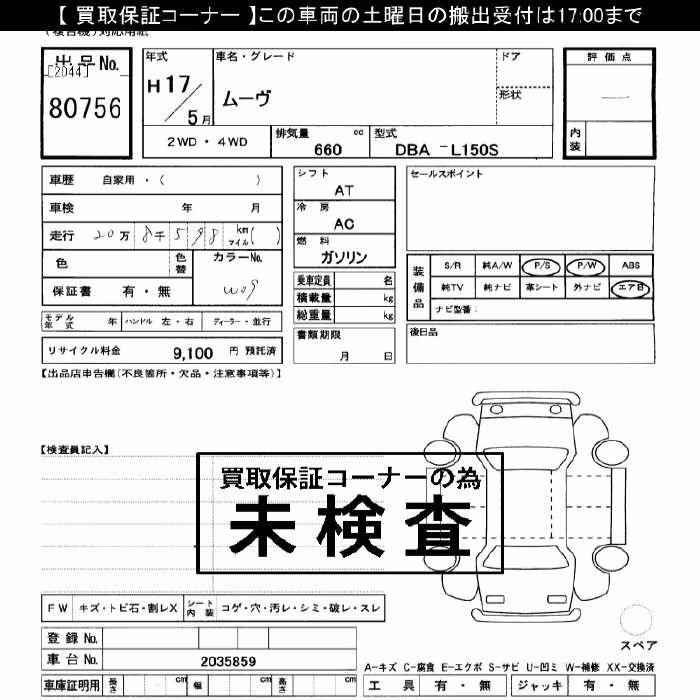 【 買取保証コーナー 】この車両の土曜日の搬出受付は17:00まで
出品No.
[2044]
80756
年式
H17/5月
車名・グレード
ムーヴ
ドア
形状
評価点
内装
2WD・4WD
排気量 cc
660
型式
DBA -L150S
車歴 自家用・( )
車検 年 月
走行 20万8千598 km マイル( )
色
色替
カラーNo.
W09
保証書 有・無
シフト
AT
冷房
AC
燃料
ガソリン
乗車定員 名
積載量 kg
総重量 kg
セールスポイント
装備品
S/R 純A/W P/S P/W ABS
純TV 純ナビ 革シート 外ナビ エアB
ナビ型番:
モデル年式 年 ハンドル 左・右 ディーラー・並行
書類期限
月 日
後日品
リサイクル料金 9,100 円 預託済
【出品店申告欄(不良箇所・欠品・注意事項等)】
【検査員記入】
買取保証コーナーの為
未検査
FW キズ・トビ石・割レX シート内装 コゲ・穴・汚レ・シミ・破レ・スレ
登録No.
車台No. 2035859
スペア
A-キズ C-腐食 E-エクボ S-サビ U-凹ミ W-補修 XX-交換済
車庫証明用 長さ cm 幅 cm 高さ cm
工具 有・無 ジャッキ 有・無